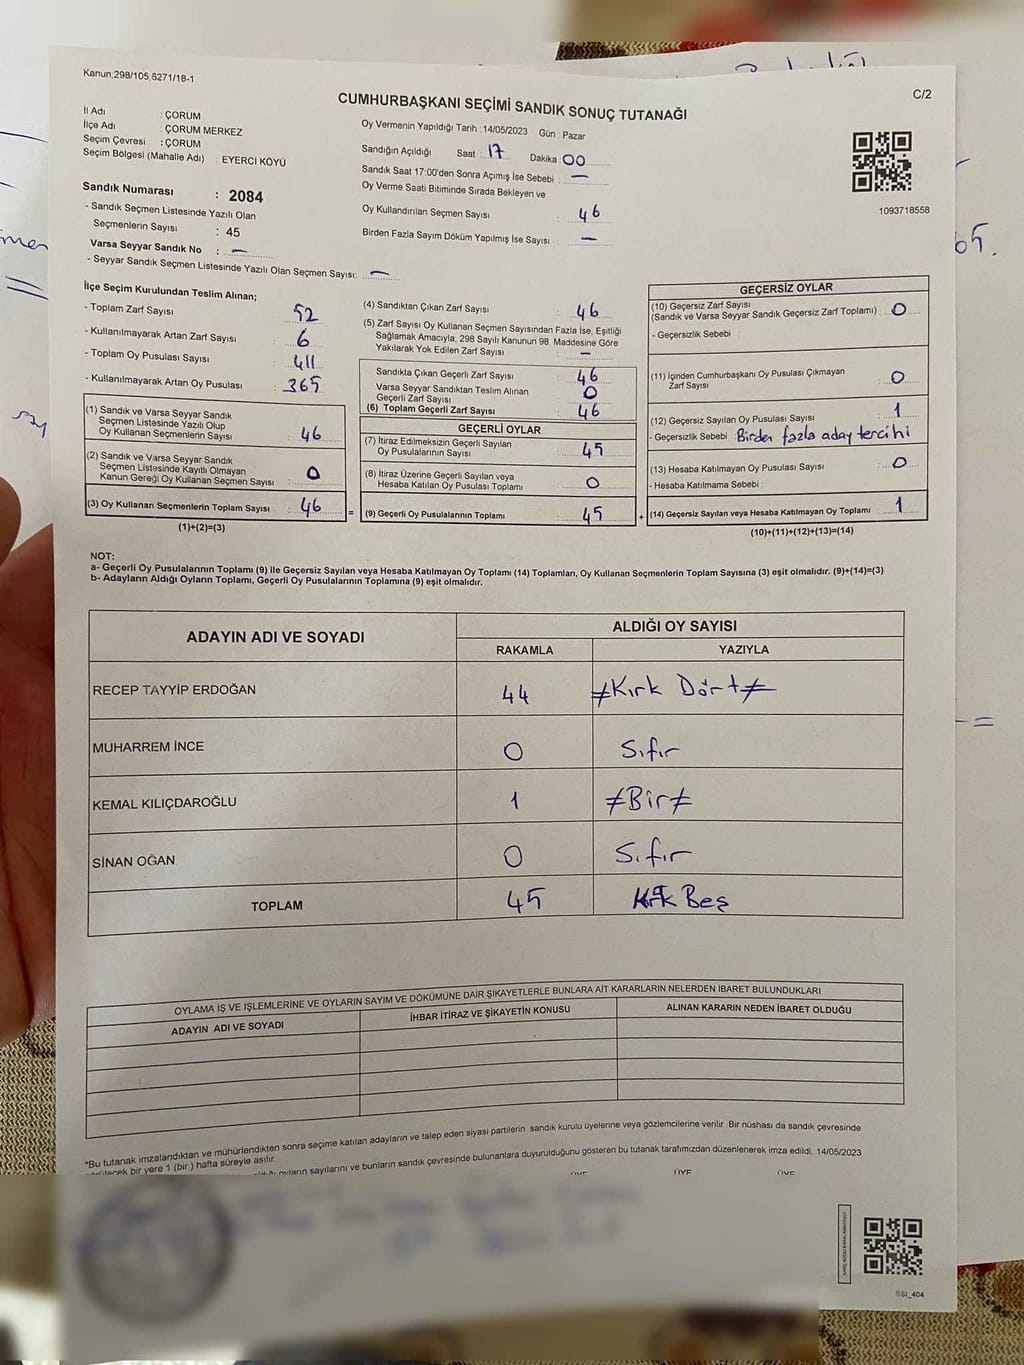 Kanun;298/105,6271/18-1
C/2
CUMHURBAŞKANI SEÇİMİ SANDIK SONUÇ TUTANAĞI
İl Adı : ÇORUM
İlçe Adı : ÇORUM MERKEZ
Seçim Çevresi : ÇORUM
Seçim Bölgesi (Mahalle Adı) : EYERCİ KÖYÜ
Sandık Numarası : 2084
- Sandık Seçmen Listesinde Yazılı Olan
Seçmenlerin Sayısı : 45
Varsa Seyyar Sandık No : —
- Seyyar Sandık Seçmen Listesinde Yazılı Olan Seçmen Sayısı: —
Oy Vermenin Yapıldığı Tarih :14/05/2023 Gün : Pazar
Sandığın Açıldığı Saat : 17 Dakika : 00
Sandık Saat 17:00'den Sonra Açımış İse Sebebi : —
Oy Verme Saati Bitiminde Sırada Bekleyen ve
Oy Kullandırılan Seçmen Sayısı : 46
Birden Fazla Sayım Döküm Yapılmış İse Sayısı : —
1093718558
İlçe Seçim Kurulundan Teslim Alınan;
- Toplam Zarf Sayısı : 52
- Kullanılmayarak Artan Zarf Sayısı : 6
- Toplam Oy Pusulası Sayısı : 411
- Kullanılmayarak Artan Oy Pusulası : 365
(1) Sandık ve Varsa Seyyar Sandık
Seçmen Listesinde Yazılı Olup
Oy Kullanan Seçmenlerin Sayısı : 46
(2) Sandık ve Varsa Seyyar Sandık
Seçmen Listesinde Kayıtlı Olmayan
Kanun Gereği Oy Kullanan Seçmen Sayısı : 0
(3) Oy Kullanan Seçmenlerin Toplam Sayısı : 46 =
(1)+(2)=(3)
(4) Sandıktan Çıkan Zarf Sayısı : 46
(5) Zarf Sayısı Oy Kullanan Seçmen Sayısından Fazla İse, Eşitliği
Sağlamak Amacıyla; 298 Sayılı Kanunun 98. Maddesine Göre
Yakılarak Yok Edilen Zarf Sayısı : —
Sandıkta Çıkan Geçerli Zarf Sayısı : 46
Varsa Seyyar Sandıktan Teslim Alınan
Geçerli Zarf Sayısı : 0
(6) Toplam Geçerli Zarf Sayısı : 46
GEÇERLİ OYLAR
(7) İtiraz Edilmeksizin Geçerli Sayılan
Oy Pusulalarının Sayısı : 45
(8) İtiraz Üzerine Geçerli Sayılan veya
Hesaba Katılan Oy Pusulası Toplamı : 0
(9) Geçerli Oy Pusulalarının Toplamı : 45 +
GEÇERSİZ OYLAR
(10) Geçersiz Zarf Sayısı
(Sandık ve Varsa Seyyar Sandık Geçersiz Zarf Toplamı) : 0
- Geçersizlik Sebebi :
(11) İçinden Cumhurbaşkanı Oy Pusulası Çıkmayan
Zarf Sayısı : 0
(12) Geçersiz Sayılan Oy Pusulası Sayısı : 1
- Geçersizlik Sebebi Birden fazla aday tercihi
(13) Hesaba Katılmayan Oy Pusulası Sayısı : 0
- Hesaba Katılmama Sebebi :
(14) Geçersiz Sayılan veya Hesaba Katılmayan Oy Toplamı : 1
(10)+(11)+(12)+(13)=(14)
NOT:
a- Geçerli Oy Pusulalarının Toplamı (9) ile Geçersiz Sayılan veya Hesaba Katılmayan Oy Toplamı (14) Toplamları, Oy Kullanan Seçmenlerin Toplam Sayısına (3) eşit olmalıdır. (9)+(14)=(3)
b- Adayların Aldığı Oyların Toplamı, Geçerli Oy Pusulalarının Toplamına (9) eşit olmalıdır.
ADAYIN ADI VE SOYADI ALDIĞI OY SAYISI
RAKAMLA YAZIYLA
RECEP TAYYİP ERDOĞAN 44 ≠Kırk Dört≠
MUHARREM İNCE 0 Sıfır
KEMAL KILIÇDAROĞLU 1 ≠Bir≠
SİNAN OĞAN 0 Sıfır
TOPLAM 45 Kırk Beş
OYLAMA İŞ VE İŞLEMLERİNE VE OYLARIN SAYIM VE DÖKÜMÜNE DAİR ŞİKAYETLERLE BUNLARA AİT KARARLARIN NELERDEN İBARET BULUNDUKLARI
ADAYIN ADI VE SOYADI İHBAR İTİRAZ VE ŞİKAYETİN KONUSU ALINAN KARARIN NEDEN İBARET OLDUĞU
*Bu tutanak imzalandıktan ve mühürlendikten sonra seçime katılan adayların ve talep eden siyasi partilerin sandık kurulu üyelerine veya gözlemcilerine verilir. Bir nüshası da sandık çevresinde
görülecek bir yere 1 (bir) hafta süreyle asılır.
oyların sayılarını ve bunların sandık çevresinde bulunanlara duyurulduğunu gösteren bu tutanak tarafımızdan düzenlenerek imza edildi. 14/05/2023
ÜYE ÜYE ÜYE
SSI_404
65.